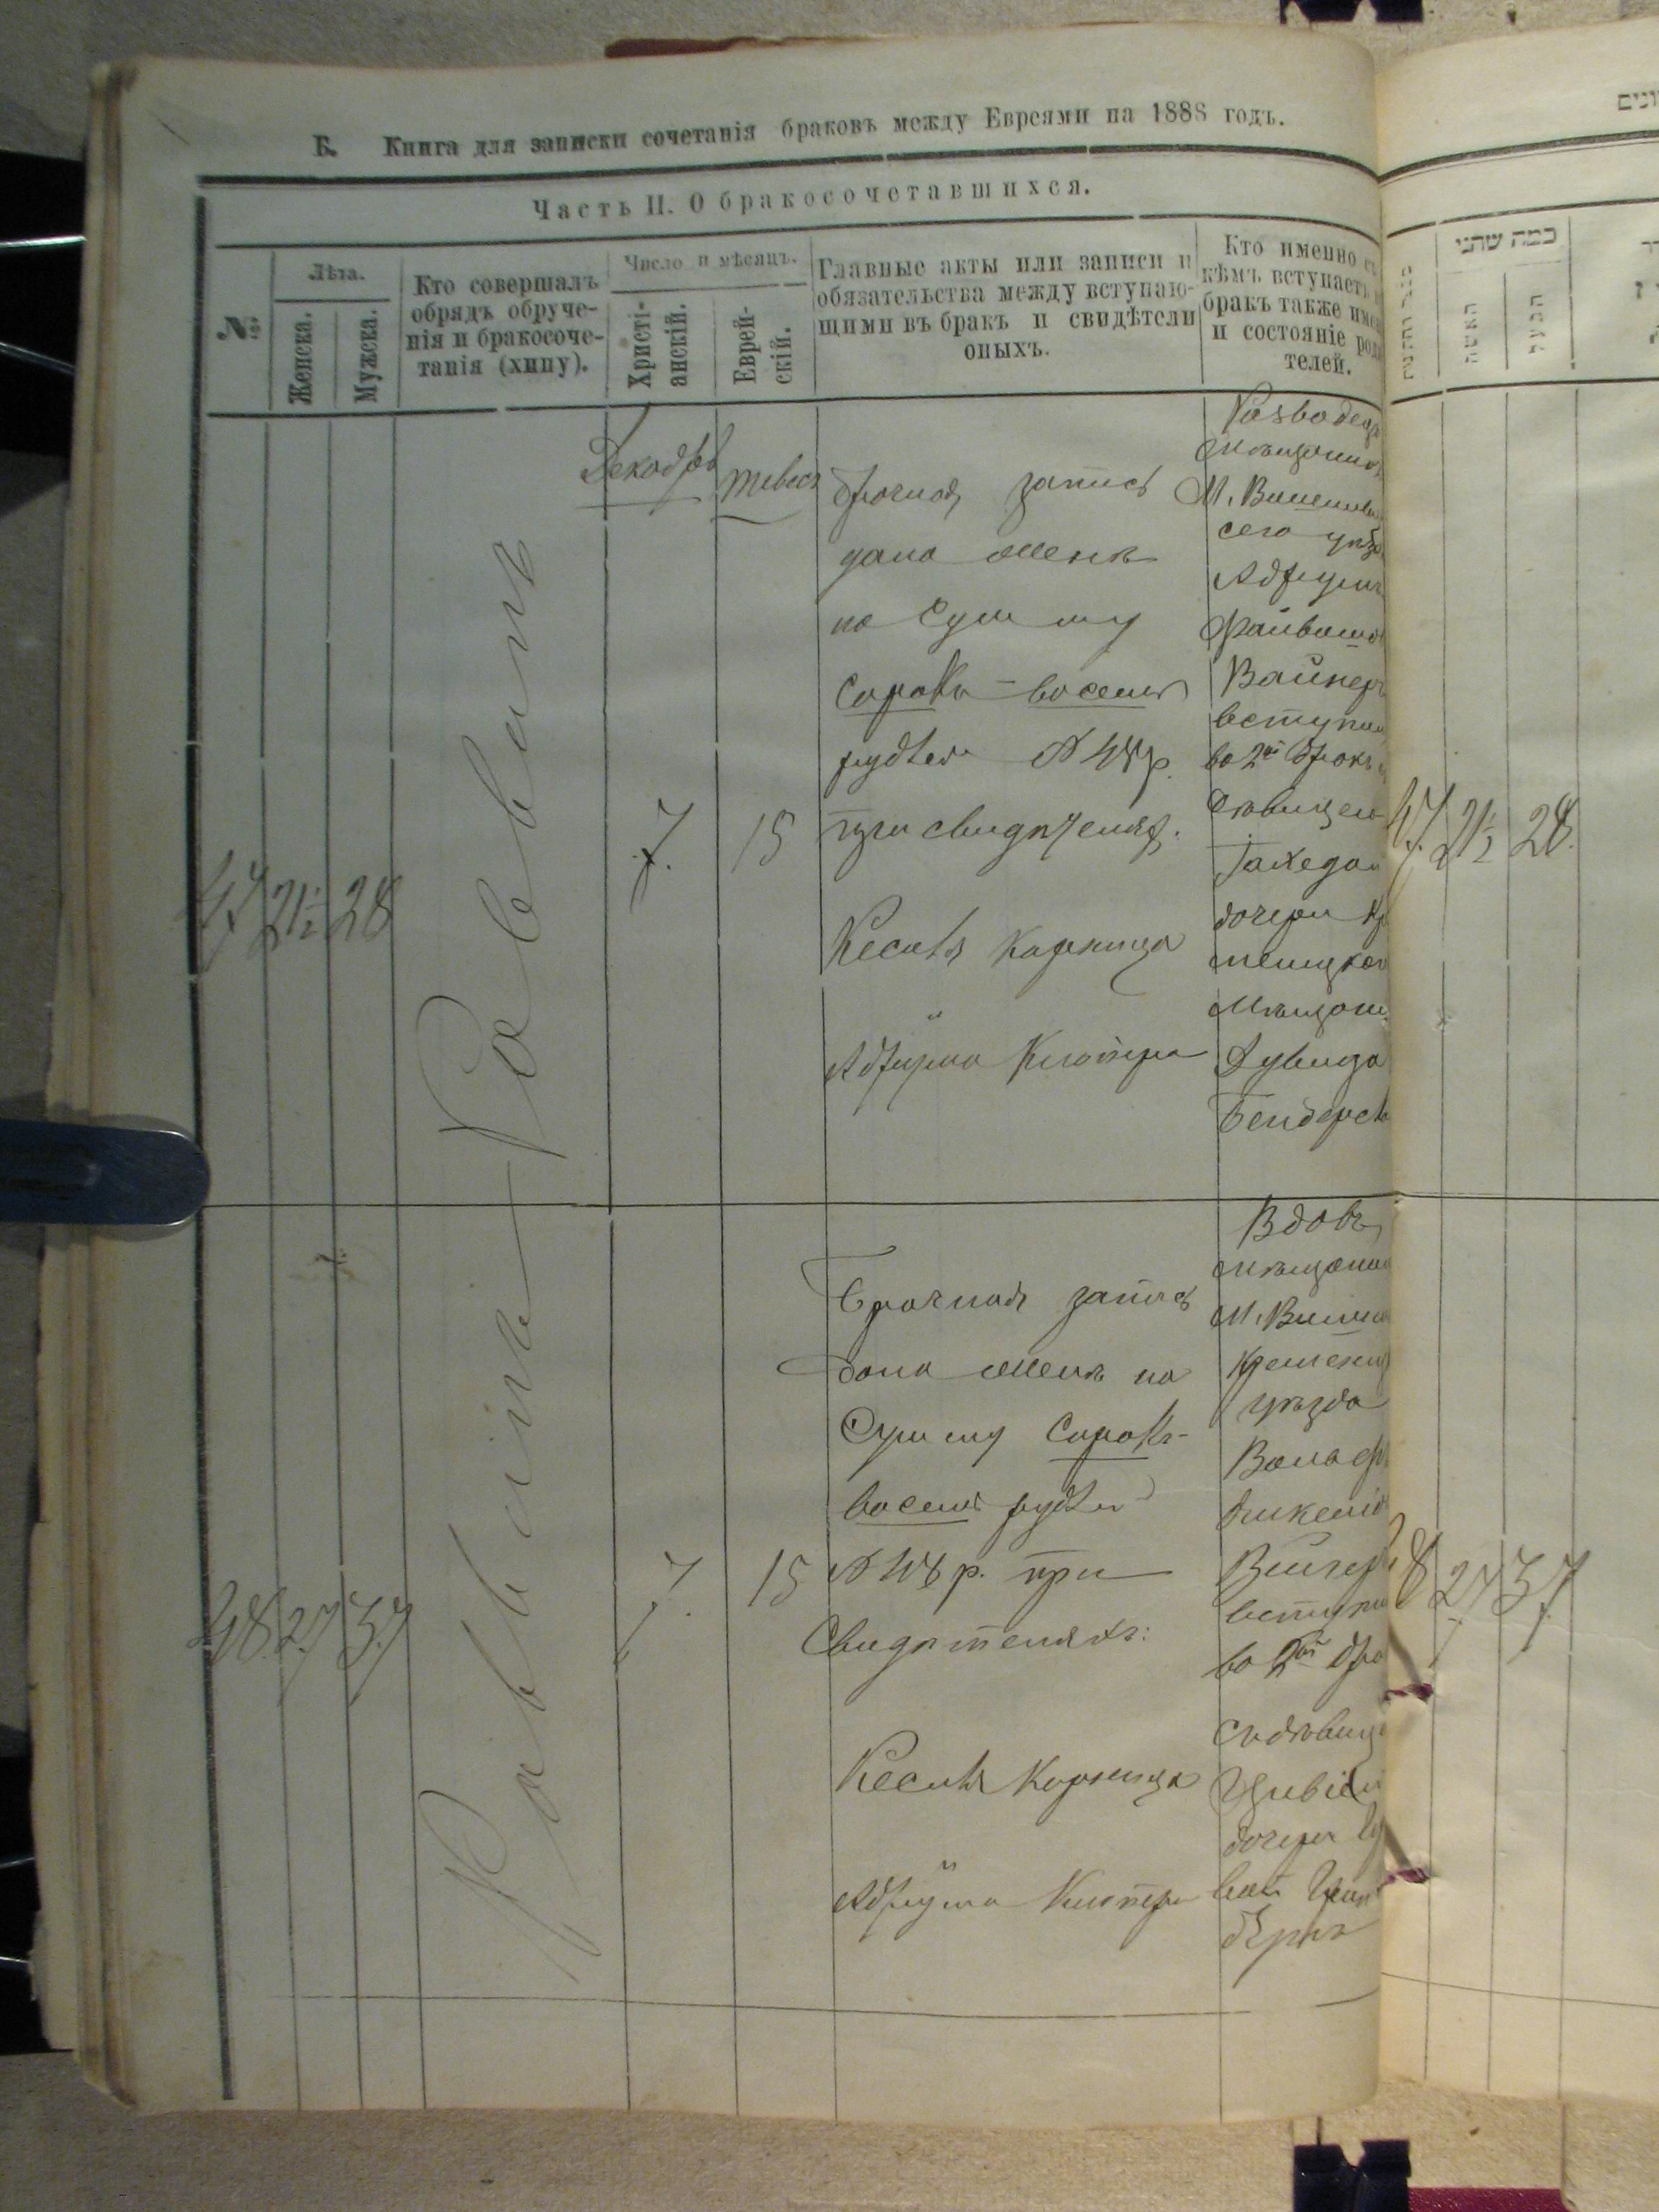 Б. Книга для записки сочетанія браковъ между Евреями на 1888 годъ.
Часть II. О бракосочетавшихся.
№
Лѣта.
Женска.
Мужска.
Кто совершалъ
обрядъ обруче-
нія и бракосоче-
танія (хипу).
Число и мѣсяцъ.
Христі-
анскій.
Еврей-
скій.
Главные акты или записи и
обязательства между вступаю-
щими въ бракъ и свидѣтели
оныхъ.
Кто именно съ
кѣмъ вступаетъ
бракъ также име
и состояніе род
телей.
47
21½
28
Раввинъ
Декабрь
7.
Тевес
15
Брочная запись
дана Менѣ
на Сумму
Сорокъ-восемь
рубле 48 р.
при свидѣтеляхъ.
Кесиль Корница
Абрумъ
Разводец
Мѣщанинъ
М. Вишневе
сего уѣзд
Абрумъ
Файвишов
Вайнер
вступил
во 2й бракъ
Дѣвицею
дочери Кре
менецкаго
Мѣщани
Дувида
Бендерск
48
27
37
Раввинъ
7.
15
Брачная запись
дана Менѣ на
Сумму Сорокъ-
восемь рубле
48 р. при
Свидѣтеляхъ:
Кесиль Корница
Абрумъ
Вдовъ,
Мѣщанин
М. Вишне
Кременец
уѣзда
Вольф
вступил
во 2й бра
дочери
כמה שתני
האשה
הבעל
47.
21½
28.
48
27
37